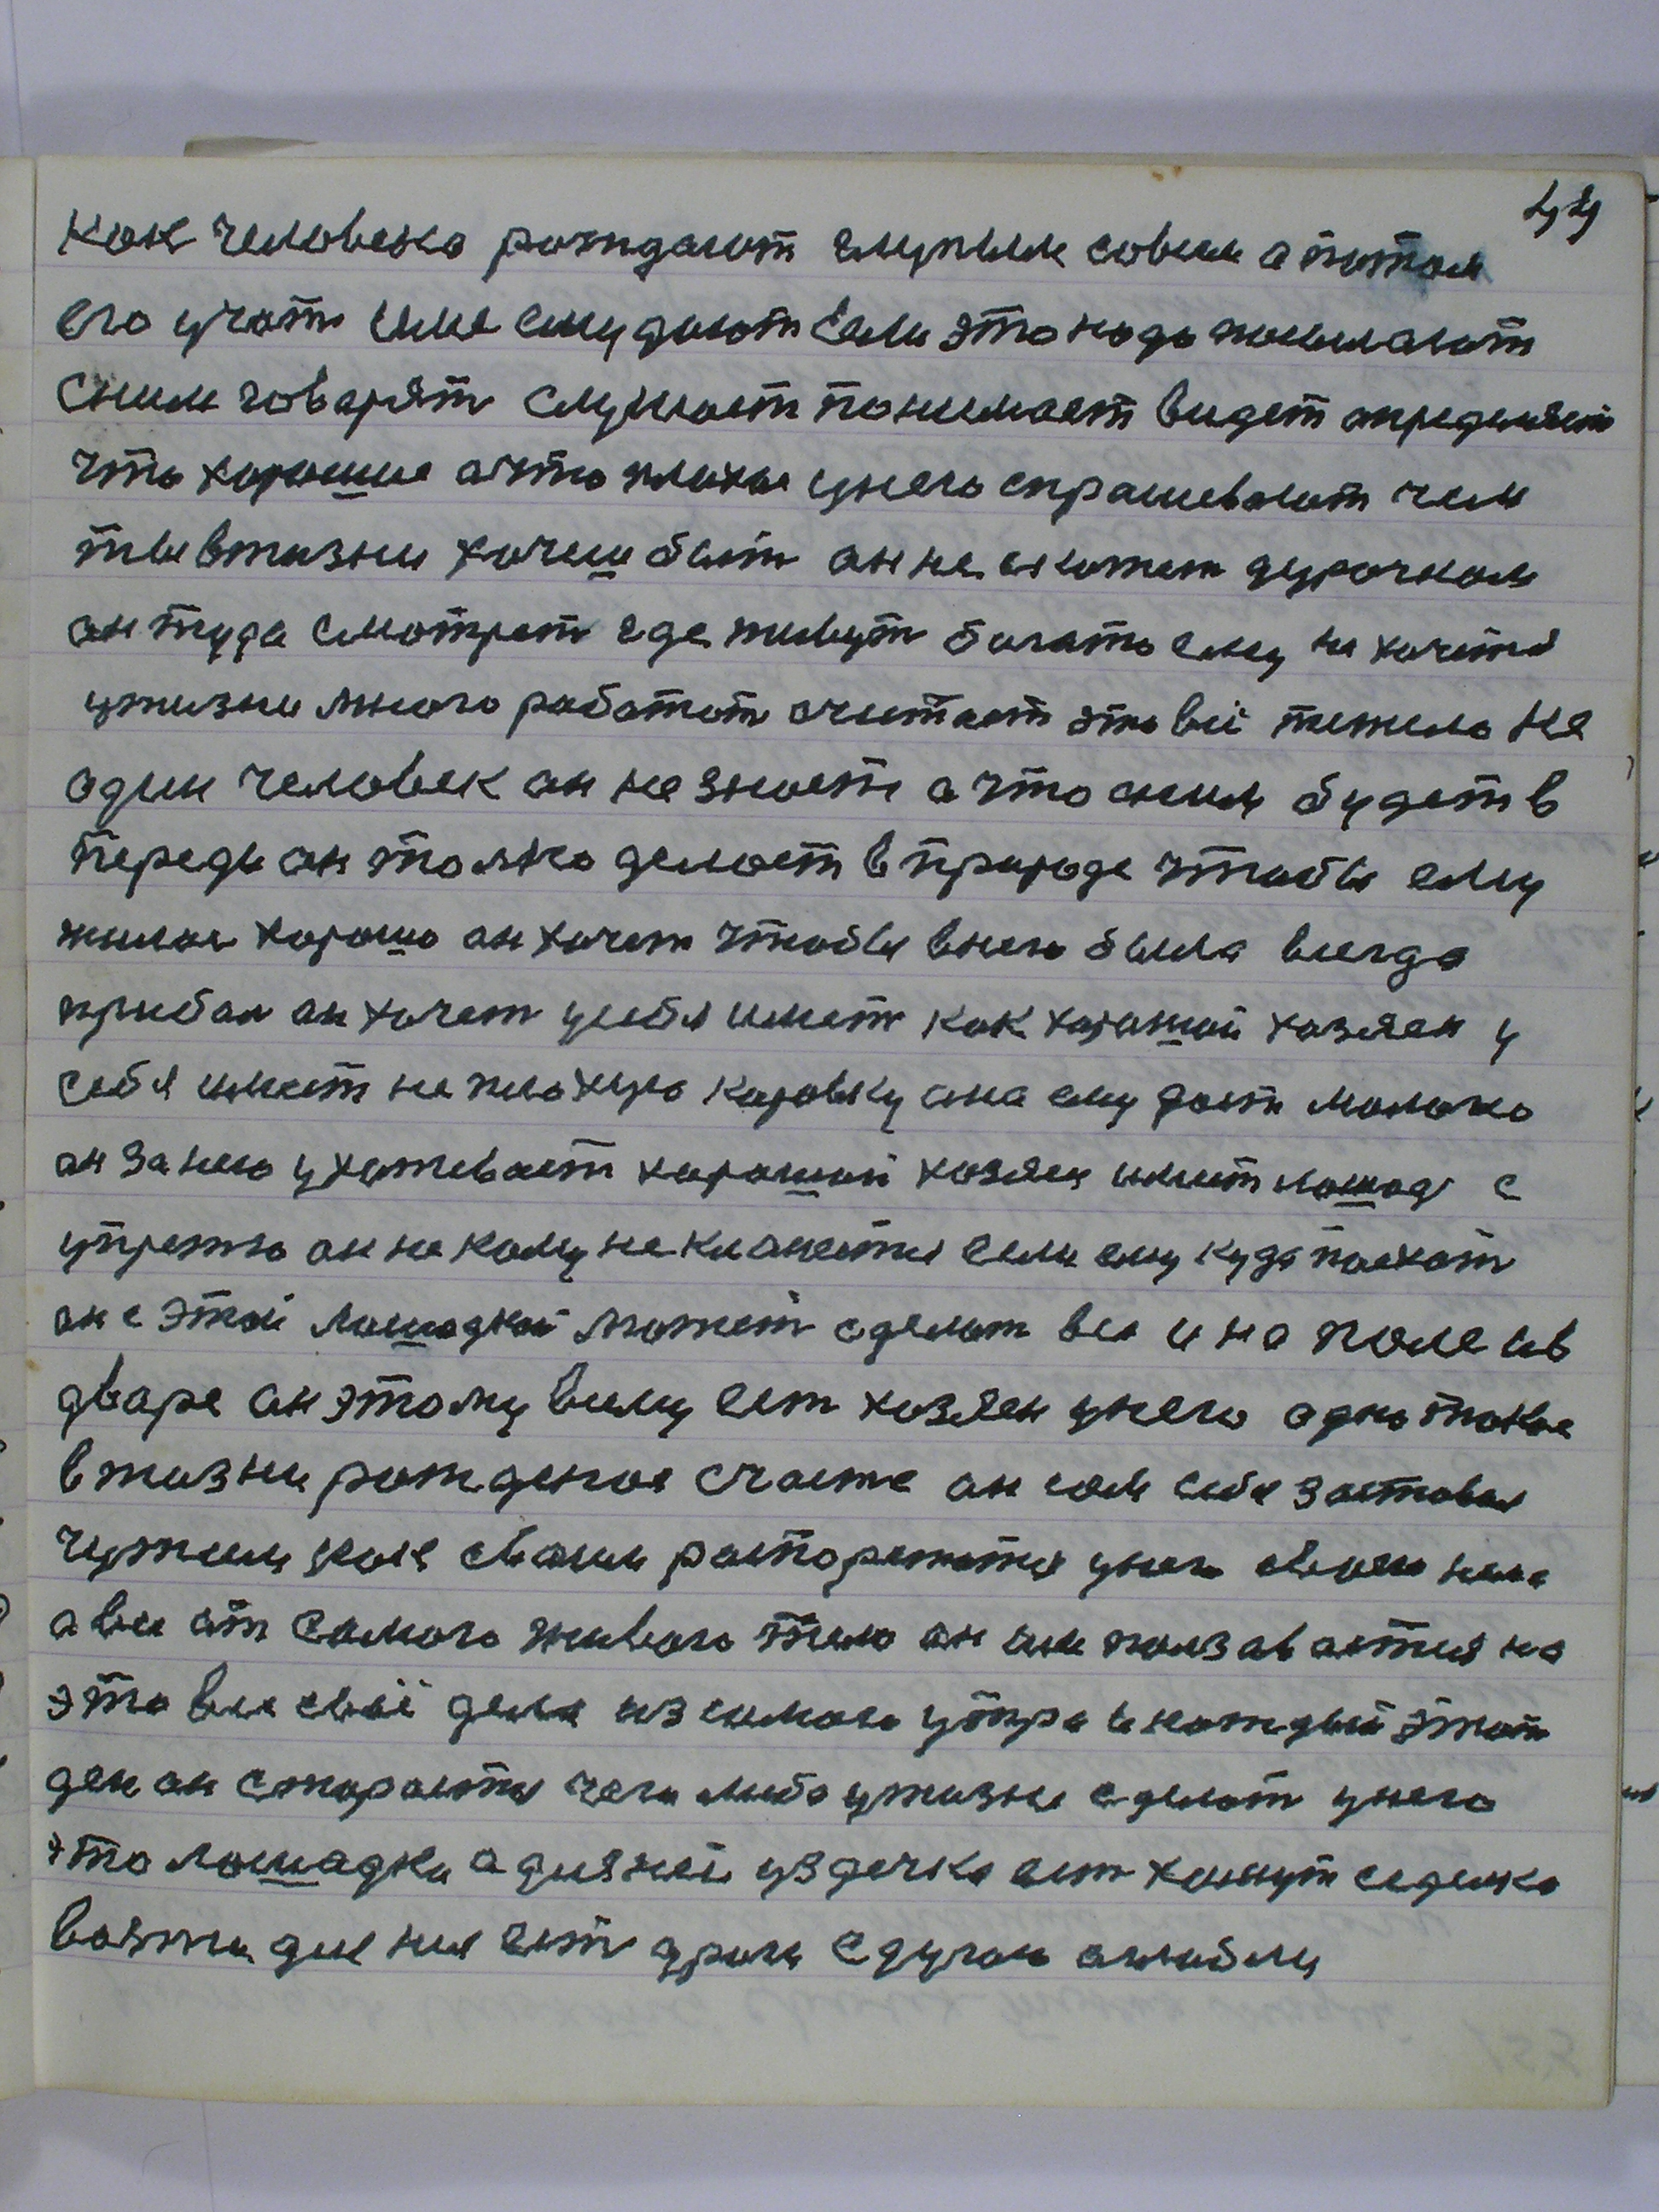 44
как человека рождают глупым совсем а потом
его учат имя ему дают если это надо понимают
сним говарят слушает понимает видет определяет
что хорошие ачто плохое унего спрашевают чем
ты вжизни хочеш быт ан не скажет дурочком
ан туда смотрет где живут богато ему не хочется
ужизни много работат считает это всё тежело не
один человек ан не знает а что сним будет в
переди ан только делает в природе чтобы ему
жилос хорошо ан хочет чтобы внего была всегда
прибал ан хочет усебя имет как харошой хазяен у
себя имеет не плохую каровку ана ему дает молоко
ан за нею ухаживает харошый хозяен имеет лошад с
упрежю ан не кому не кланеется если ему куда поехат
ан с этой лошадкой может сделат все и на поле ив
дваре ан этому всему ест хозяен унего одно такое
вжизни рожденое счасте ан сам себя заставил
чужим как сваим распорежатся унего своего нема
а все ат самого живого тело ан им ползавается на
это все своё дела из самого утра и каждый этот
ден ан старается чего либо ужизни сделат унего
это лошадки а дляней уздечка ест хомут седелка
вожжи для нея ест дроги сдугою аглобли